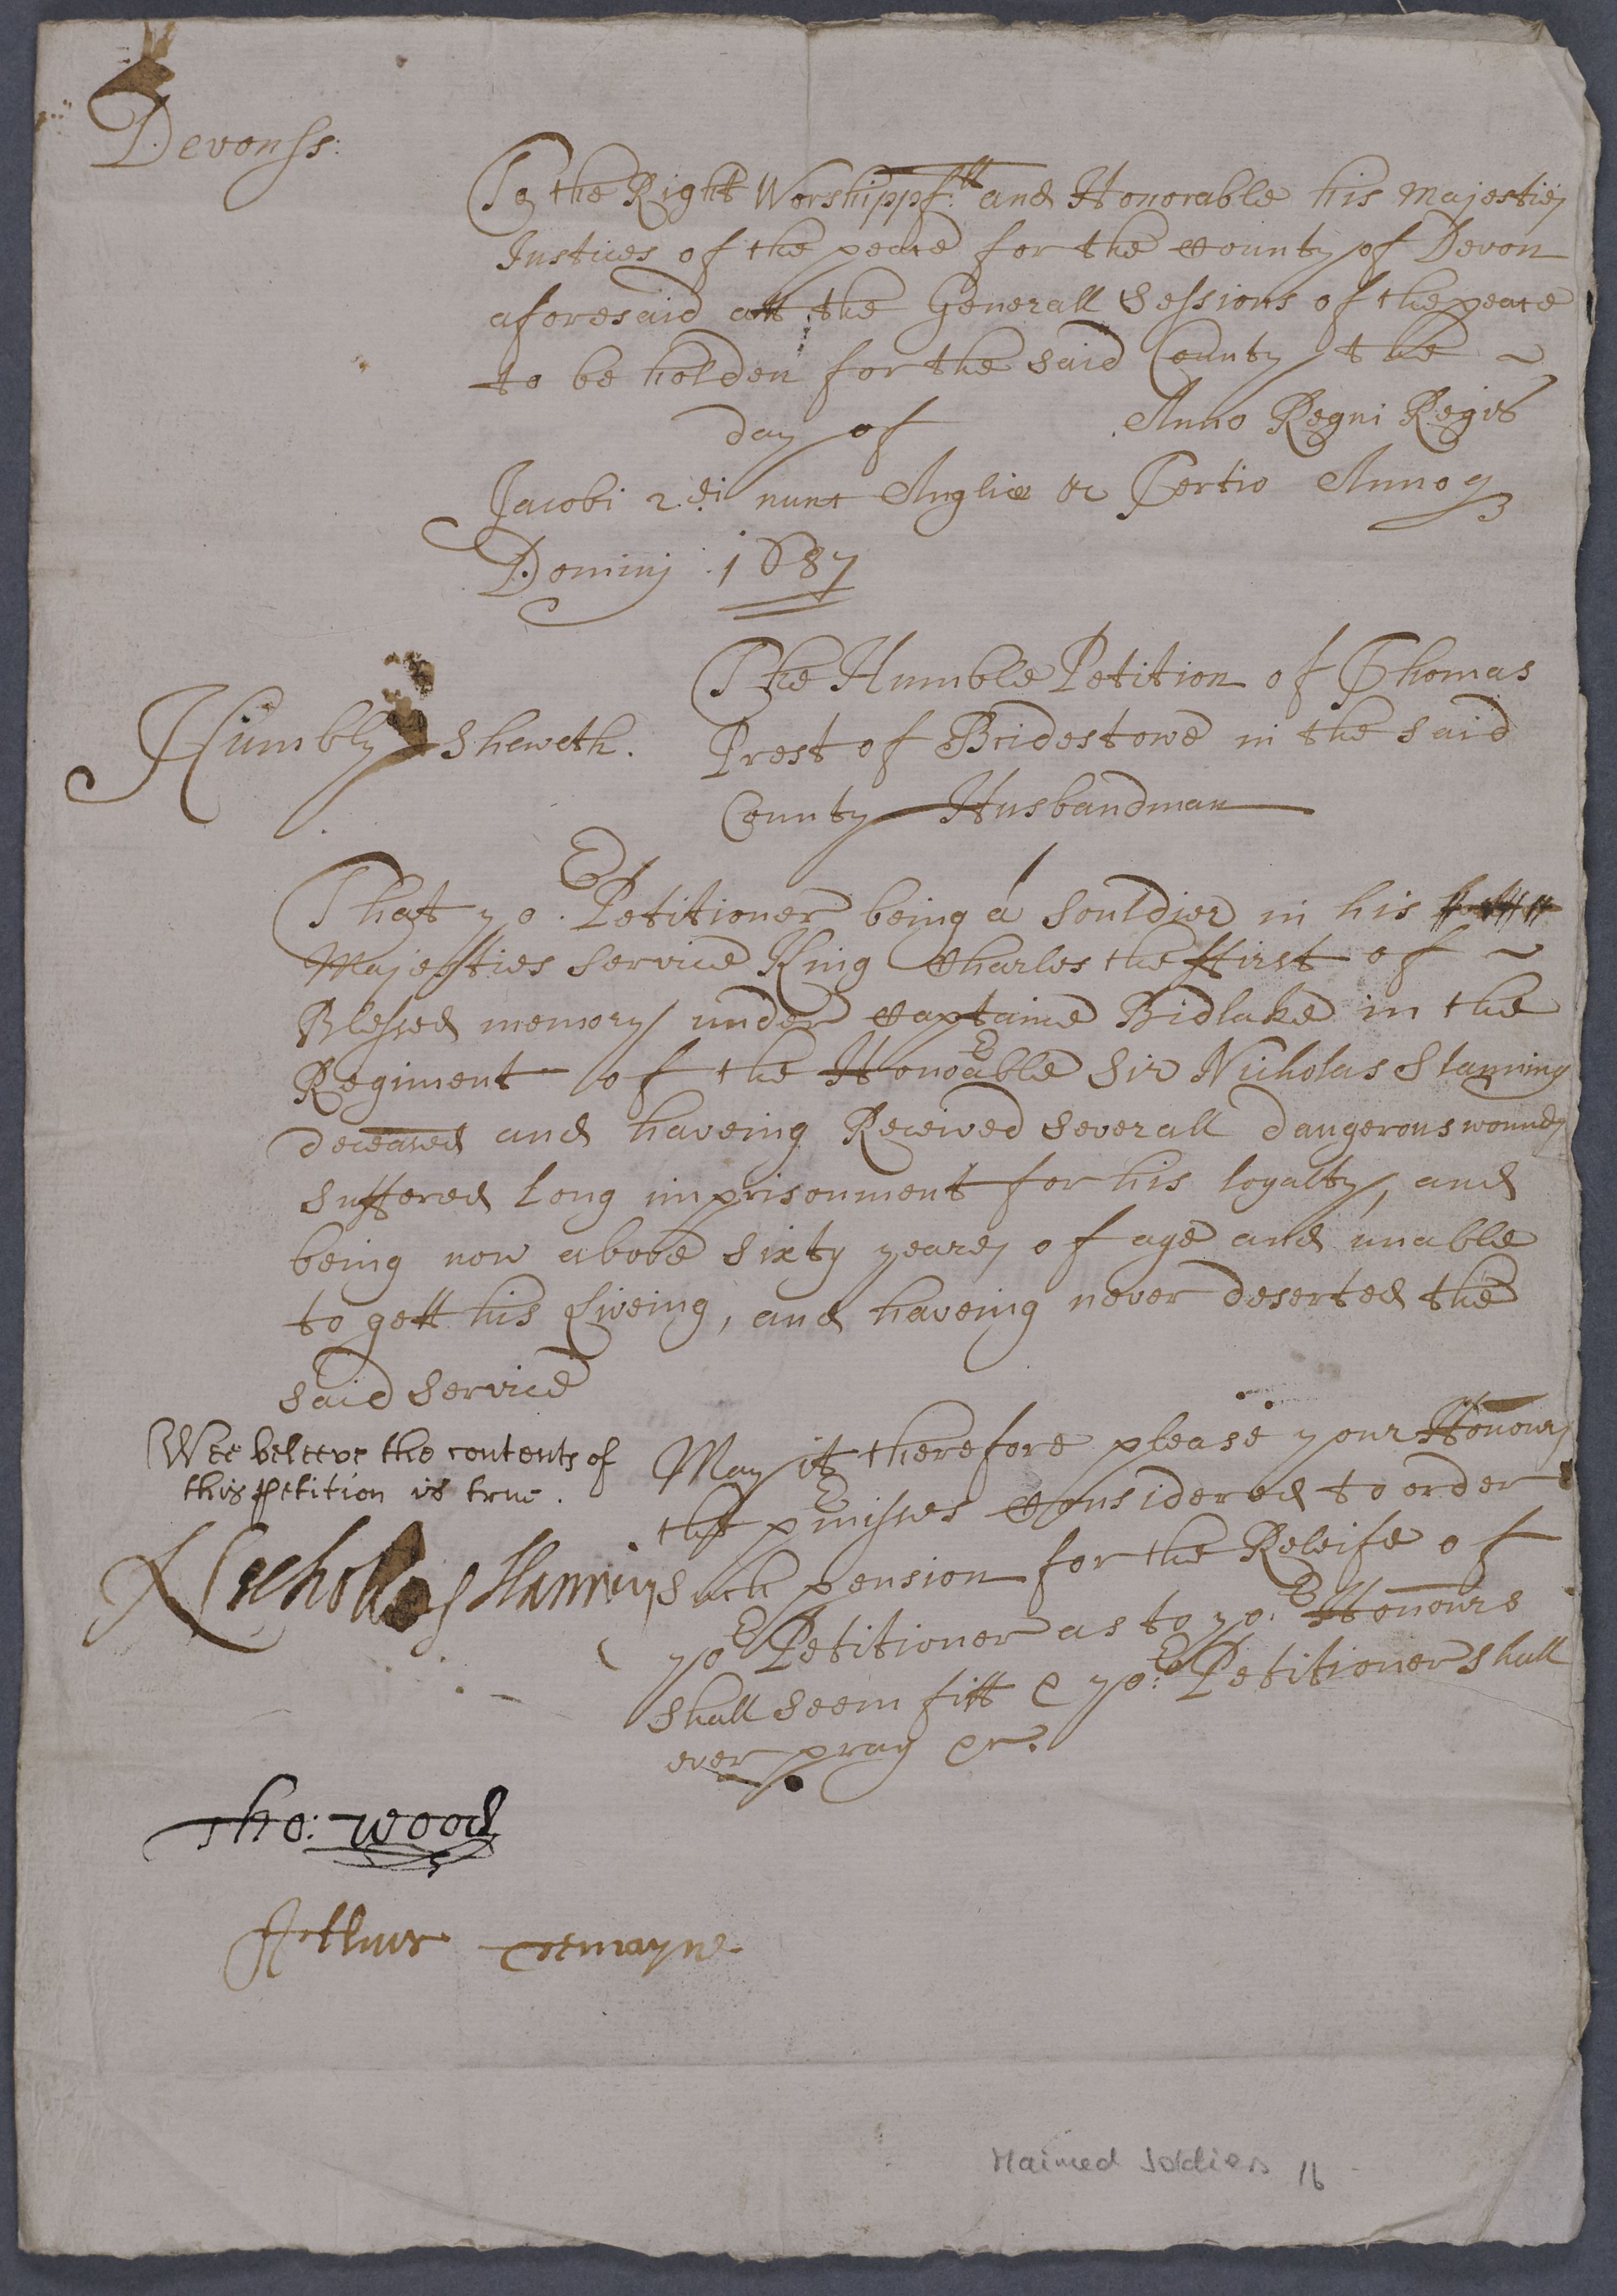 Devonss:
To the Right Worshippfll and Honorable his Majesties
Justices of the peace for the County of Devon
aforesaid att the Generall Sessions of the peace
to be holden for the said County the ~
day of Anno Regni Regis
Jacobi 2.di nunc Anglie &c Tertio Annoq
Dominj : 1687
The Humble Petition of Thomas
Prest of Bridestowe in the said
County Husbandman
Humbly Sheweth.
That yor. Petitioner being a Souldier in his
Majesties Service King Charles the ffirst of ~
Blessed memory under Captaine Bidlake in the
Regiment of the Honorable Sir Nicholas Slanning
deceased and haveing Received Severall dangerous wounds
Suffered long imprisonment for his loyalty, and
being now above Sixty yeares of age and unable
to gett his Liveing, and haveing never deserted the
said Service
May it therefore please your Honours
the prmisses Considered to order
Such pension for the Releife of
yor Petitioner as to yor. Honours
shall seem fitt & yor: Petitioner shall
ever pray &c.
Wee beleeve the contents of
this Petition is true.
Nicholas Slanning
Tho: Wood
Arthur Tremayne
Maimed Soldiers 16